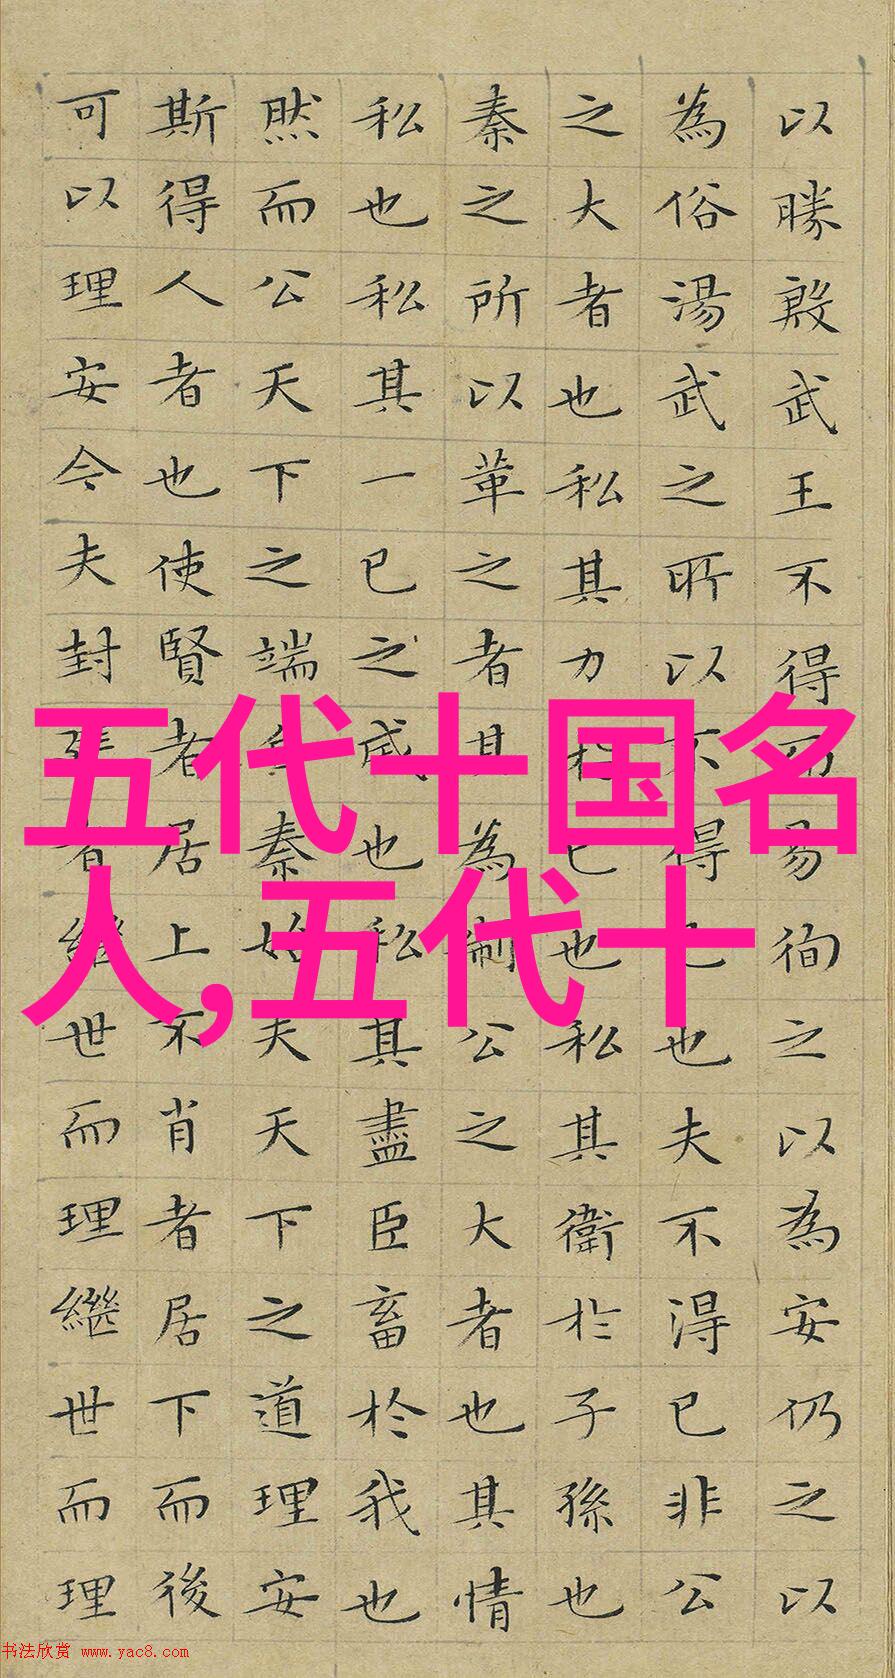 以勝殷武王不得而易徇之以為安仍之以
為俗湯武之所以不得已也夫不得已非公
之大者也私其力於已也私其衛於子孫也
秦之所以革之者其為制公之大者也其情
私也私其一已之威也私其盡臣畜於我也
然而公天下之端自秦始夫天下之道理安
斯得人者也使賢者居上不肖者居下而後
可以理安今夫封建者繼世而理繼世而理
五代十国名
人,五代十
书法欣赏 www.yac8.com